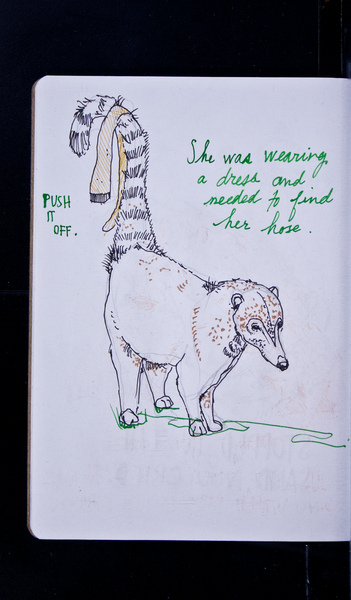 She was wearing
a dress and
needed to find
her hose.
PUSH
IT
OFF.